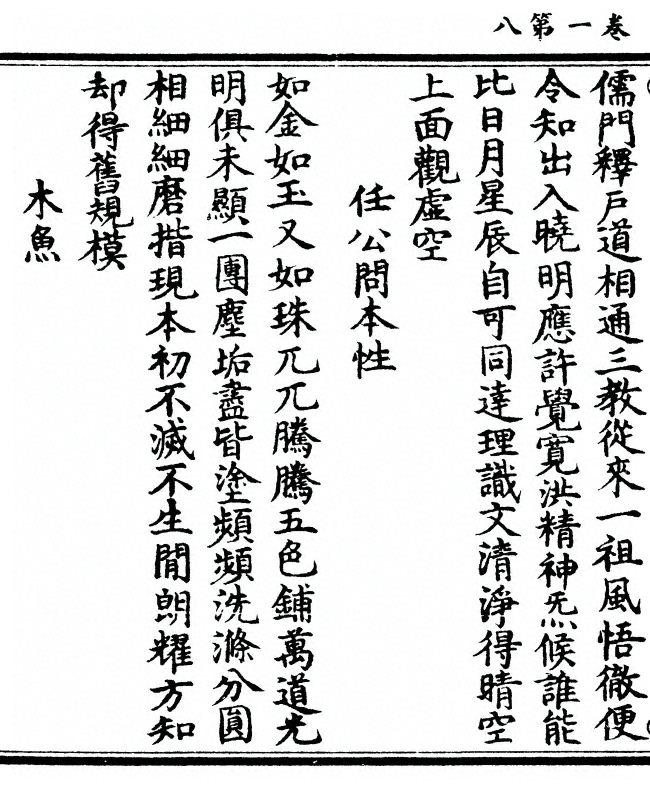 卷一第八
儒門釋戶道相通三教從來一祖風悟徹便
令知出入曉明應許覺寬洪精神炁候誰能
比日月星辰自可同達理識文清淨得晴空
上面觀虛空
任公問本性
如金如玉又如珠兀兀騰騰五色鋪萬道光
明俱未顯一團塵垢盡皆塗頻頻洗滌分圓
相細細磨揩現本初不滅不生閒朗耀方知
却得舊規模
木魚